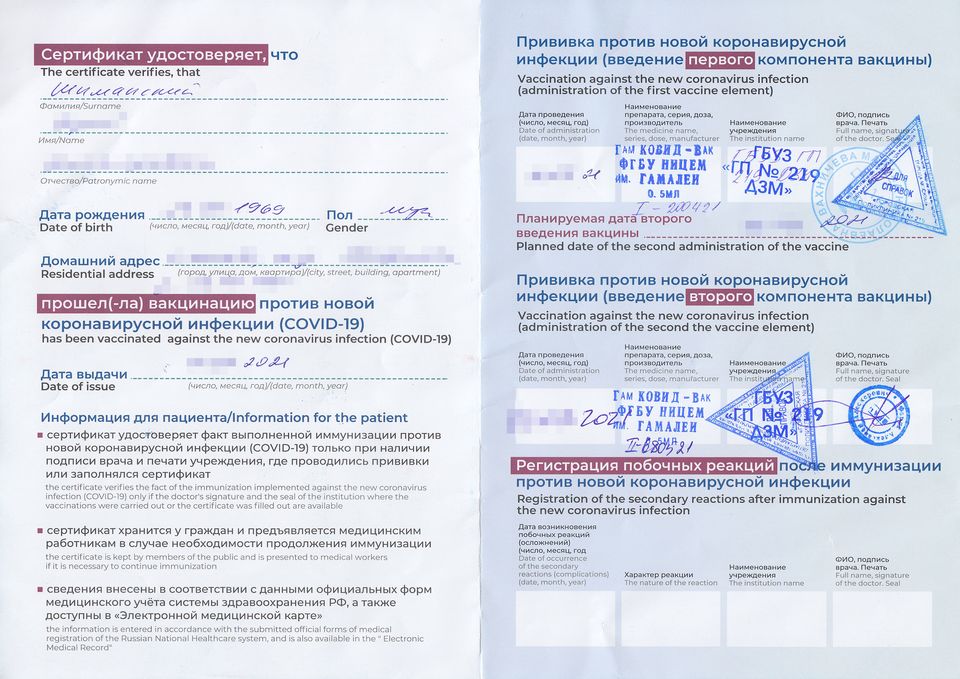 Сертификат удостоверяет, что
The certificate verifies, that
Шиманский
Фамилия/Surname
Имя/Name
Отчество/Patronymic name
Дата рождения 1969 Пол муж
Date of birth (число, месяц, год)/(date, month, year) Gender
Домашний адрес
Residential address (город, улица, дом, квартира)/(city, street, building, apartment)
прошел(-ла) вакцинацию против новой
коронавирусной инфекции (COVID-19)
has been vaccinated against the new coronavirus infection (COVID-19)
Дата выдачи 2021
Date of issue (число, месяц, год)/(date, month, year)
Информация для пациента/Information for the patient
сертификат удостоверяет факт выполненной иммунизации против
новой коронавирусной инфекции (COVID-19) только при наличии
подписи врача и печати учреждения, где проводились прививки
или заполнялся сертификат
the certificate verifies the fact of the immunization implemented against the new coronavirus
infection (COVID-19) only if the doctor's signature and the seal of the institution where the
vaccinations were carried out or the certificate was filled out are available
сертификат хранится у граждан и предъявляется медицинским
работникам в случае необходимости продолжения иммунизации
the certificate is kept by members of the public and is presented to medical workers
if it is necessary to continue immunization
сведения внесены в соответствии с данными официальных форм
медицинского учёта системы здравоохранения РФ, а также
доступны в «Электронной медицинской карте»
the information is entered in accordance with the submitted official forms of medical
registration of the Russian National Healthcare system, and is also available in the " Electronic
Medical Record"
Прививка против новой коронавирусной
инфекции (введение первого компонента вакцины)
Vaccination against the new coronavirus infection
(administration of the first vaccine element)
Дата проведения
(число, месяц, год)
Date of administration
(date, month, year)
Наименование
препарата, серия, доза,
производитель
The medicine name,
series, dose, manufacturer
Наименование
учреждения
The institution name
ФИО, подпись
врача. Печать
Full name, signature
of the doctor. Seal
21
Гам КОВИД-Вак
ФГБУ НИЦЕМ
им. ГАМАЛЕИ
0.5МЛ
I - 200421
ГБУЗ
«ГП № 219
ДЗМ»
ДЛЯ
СПРАВОК
Планируемая дата второго
введения вакцины 2021
Planned date of the second administration of the vaccine
Прививка против новой коронавирусной
инфекции (введение второго компонента вакцины)
Vaccination against the new coronavirus infection
(administration of the second the vaccine element)
Дата проведения
(число, месяц, год)
Date of administration
(date, month, year)
Наименование
препарата, серия, доза,
производитель
The medicine name,
series, dose, manufacturer
Наименование
учреждения
The institution name
ФИО, подпись
врача. Печать
Full name, signature
of the doctor. Seal
2021
Гам КОВИД-Вак
ФГБУ НИЦЕМ
им. ГАМАЛЕИ
ГБУЗ
«ГП № 219
ДЗМ»
Регистрация побочных реакций после иммунизации
против новой коронавирусной инфекции
Registration of the secondary reactions after immunization against
the new coronavirus infection
Дата возникновения
побочных реакций
(осложнений)
(число, месяц, год
Date of occurrence
of the secondary
reactions (complications)
(date, month, year)
Характер реакции
The nature of the reaction
Наименование
учреждения
The institution name
ФИО, подпись
врача. Печать
Full name, signature
of the doctor. Seal